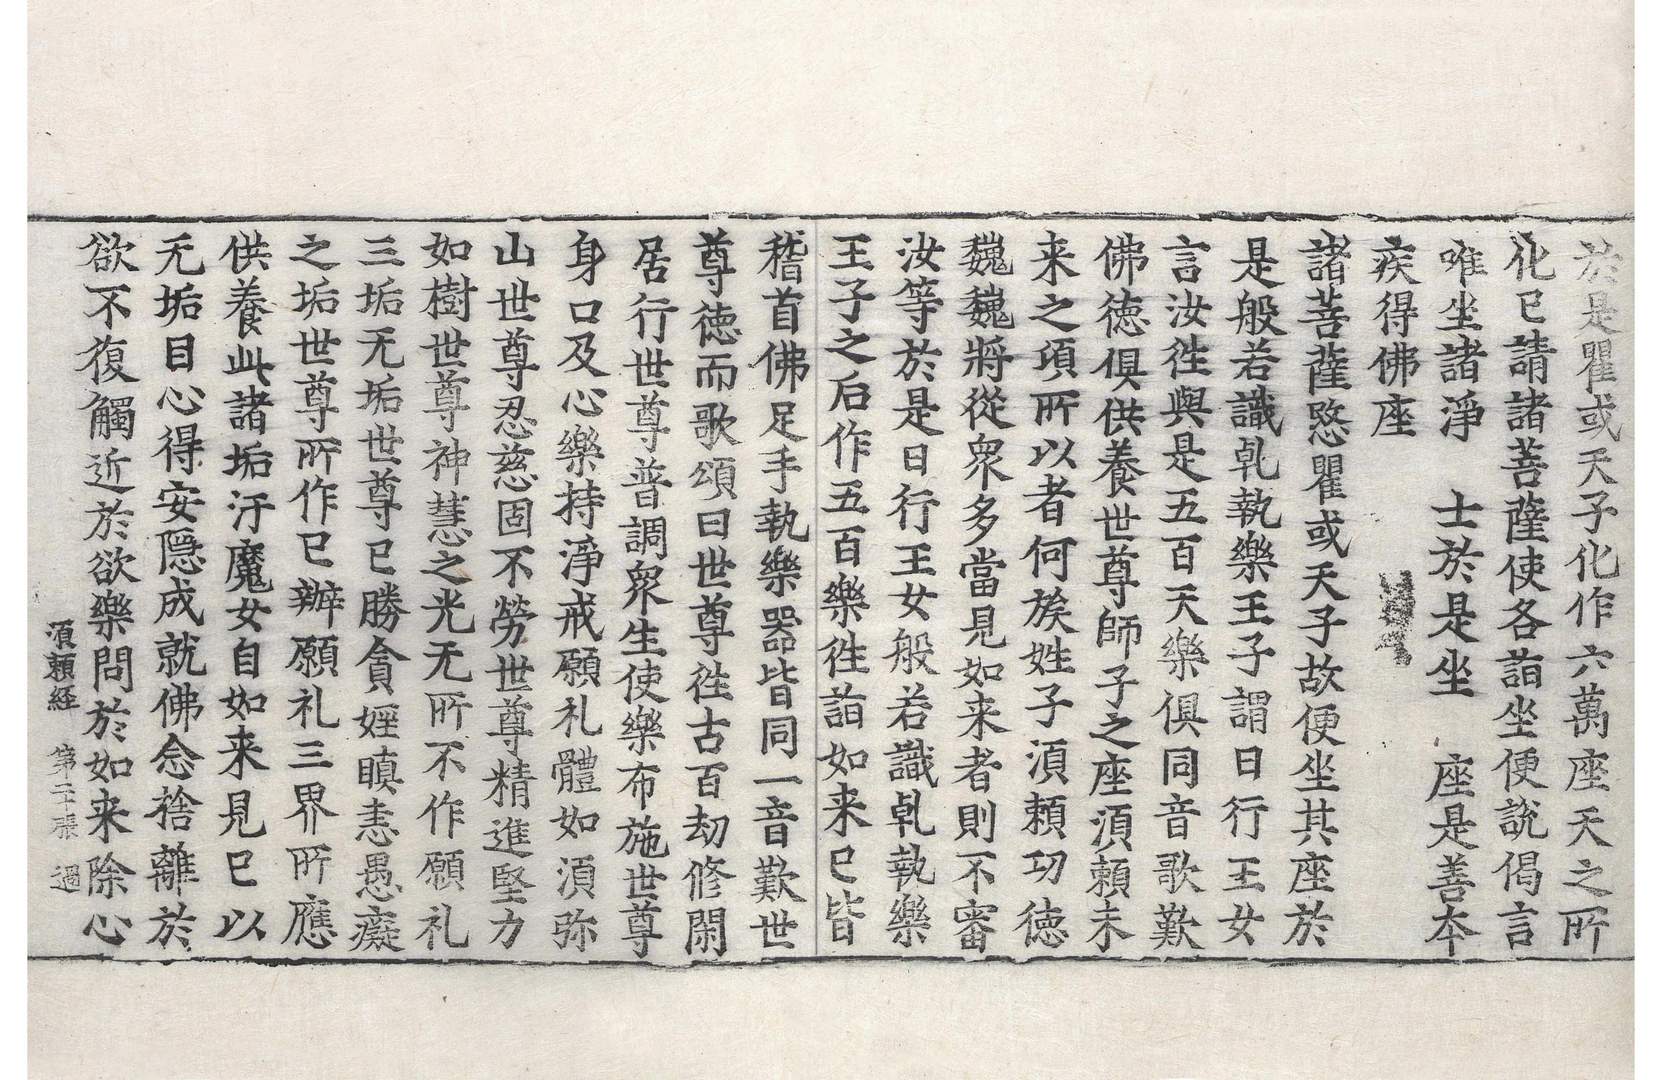 於是瞿或天子化作六萬座天之所
化已請諸菩薩使各詣坐便說偈言
唯坐諸淨　士於是坐　座是善本
疾得佛座
諸菩薩愍瞿或天子故便坐其座於
是般若識乹執樂王子謂日行王女
言汝徃與是五百天樂俱同音歌歎
佛德俱供養世尊師子之座湏頼未
来之頃所以者何族姓子湏頼功德
巍巍將從衆多當見如来者則不審
汝等於是日行王女般若識乹執樂
王子之后作五百樂徃詣如来已皆
稽首佛足手執樂器皆同一音歎世
尊德而歌頌曰世尊徃古百劫修閑
居行世尊普調衆生使樂布施世尊
身口及心樂持淨戒願礼體如湏弥
山世尊忍慈固不勞世尊精進堅力
如樹世尊神慧之光无所不作願礼
三垢无垢世尊已勝貪婬瞋恚愚癡
之垢世尊所作已辦願礼三界所應
供養此諸垢汙魔女自如来見已以
无垢目心得安隱成就佛念捨離於
欲不復觸近於欲樂問於如来除心
湏頼經　第二十張　過